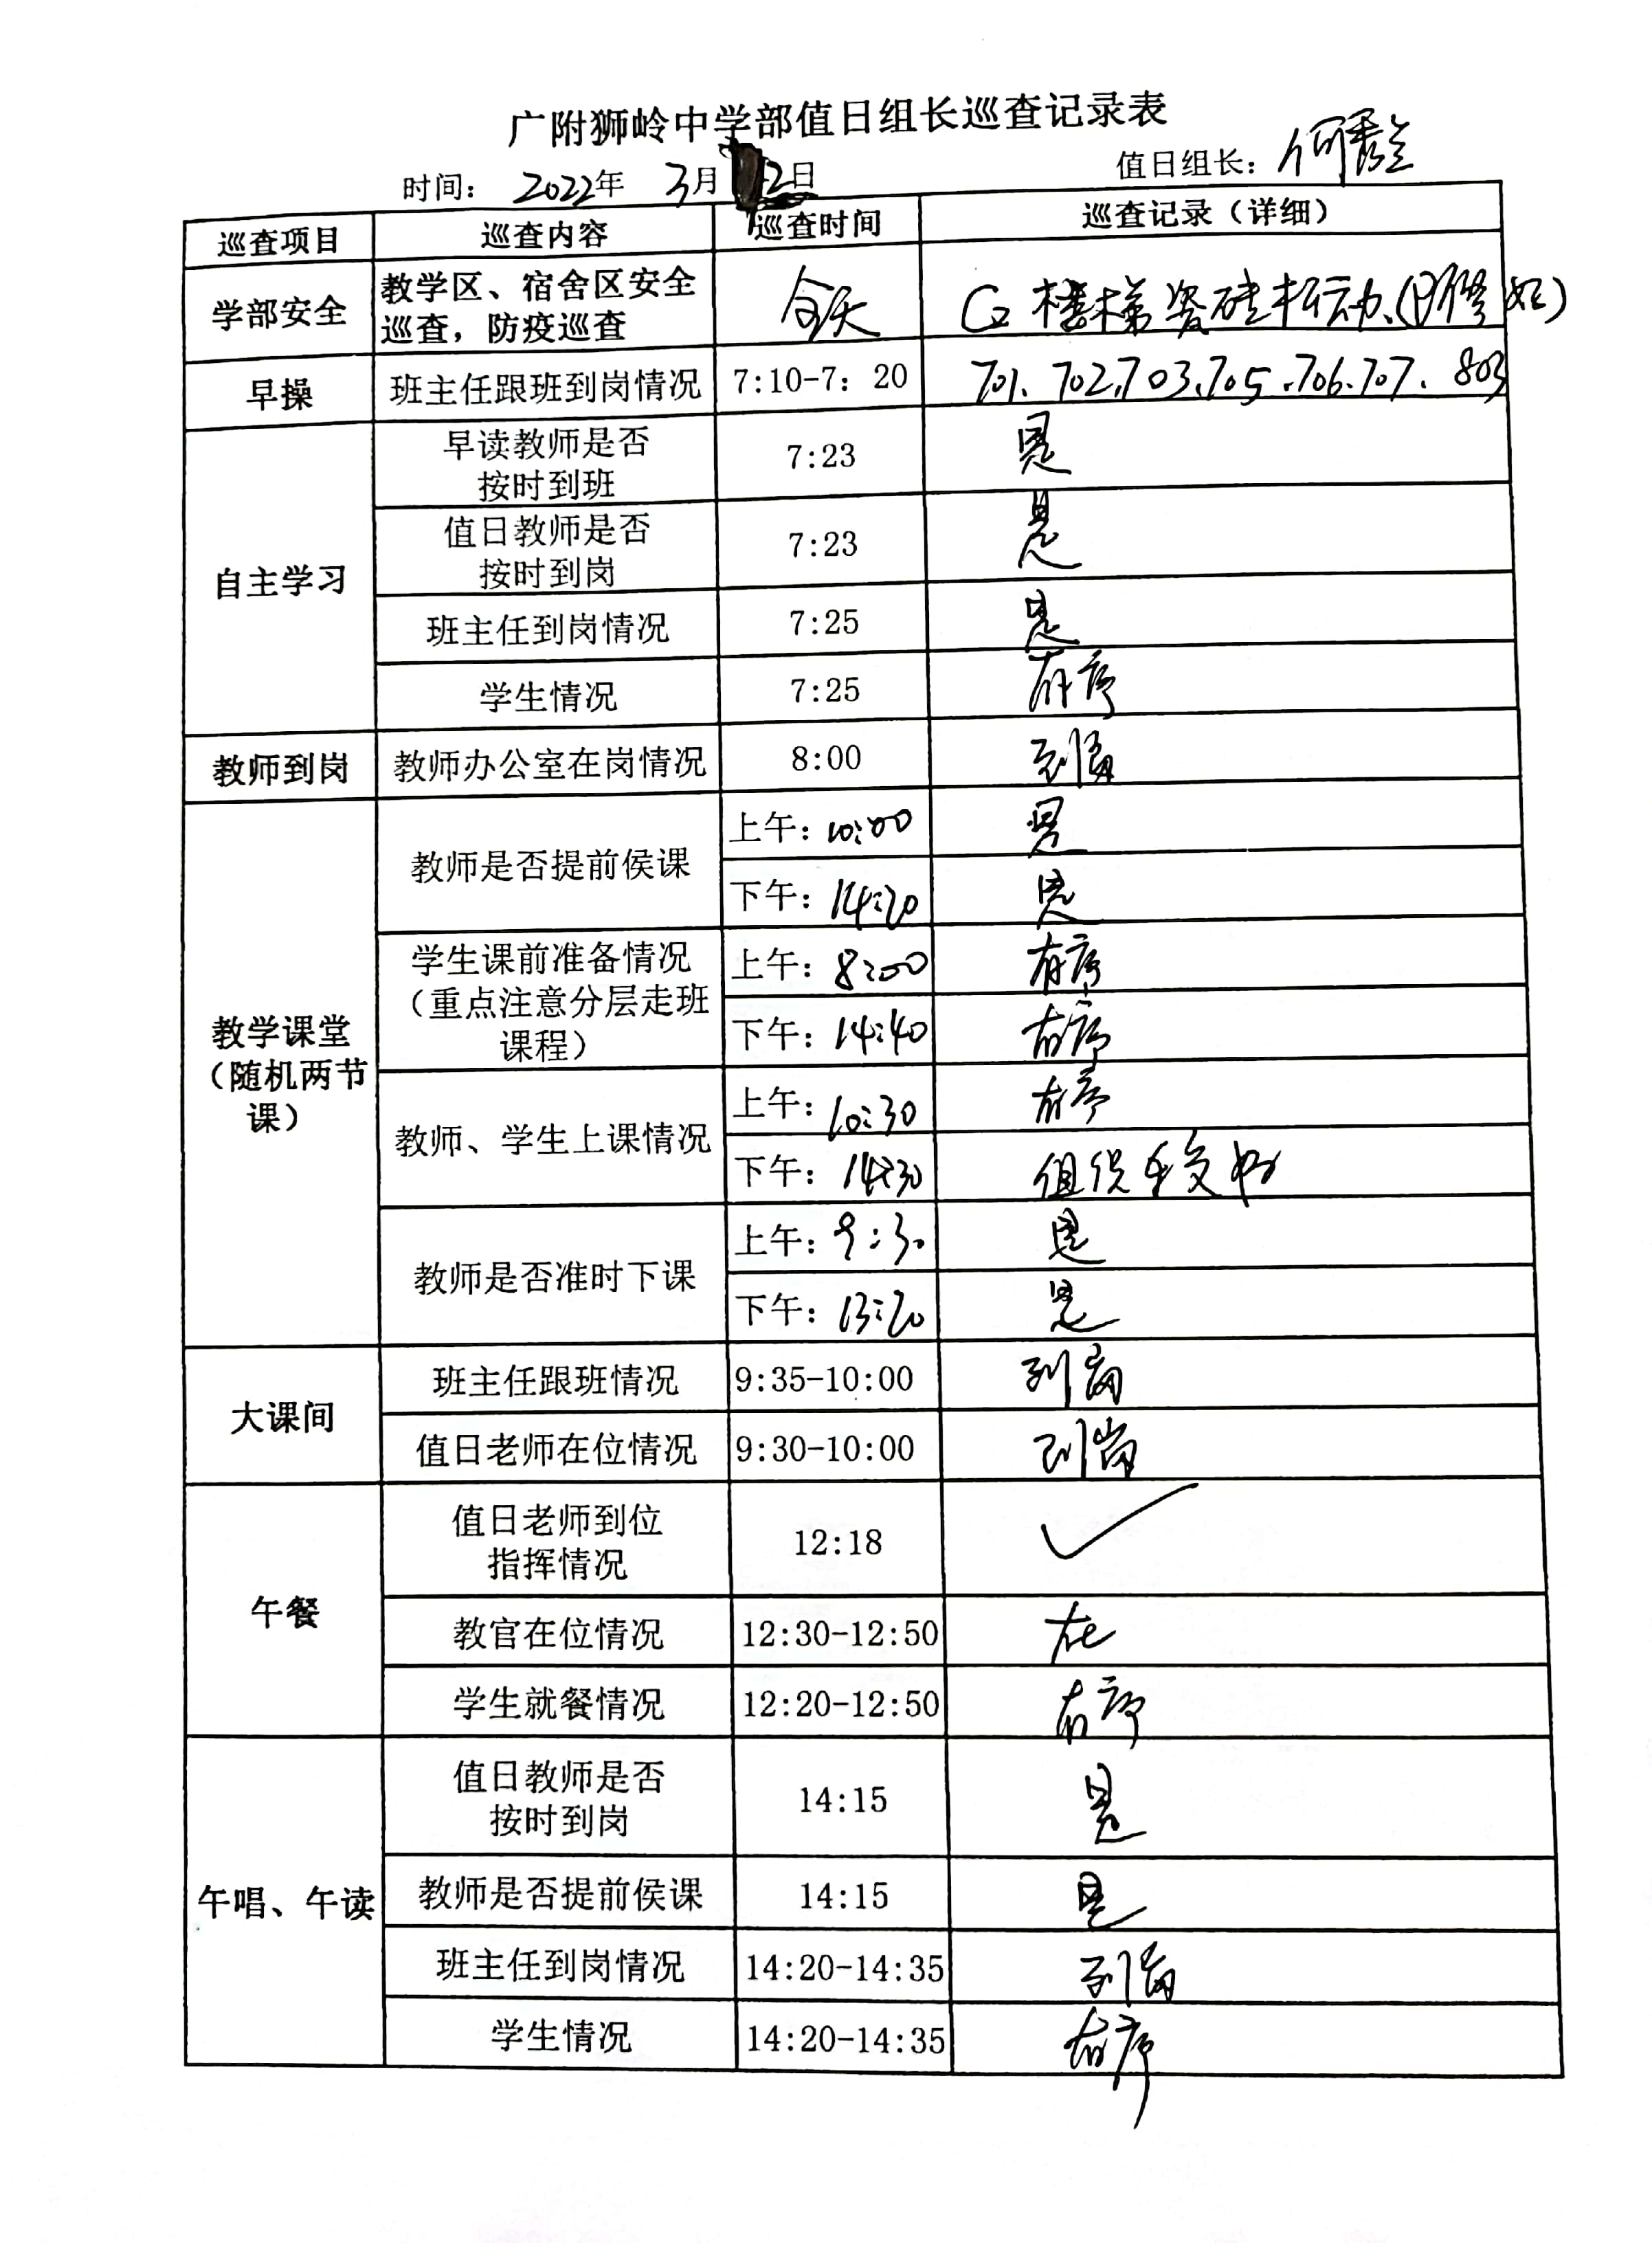 广附狮岭中学部值日组长巡查记录表
时间： 2022年 3月 2日 值日组长：
巡查项目 巡查内容 巡查时间 巡查记录（详细）
学部安全 教学区、宿舍区安全巡查，防疫巡查 全天 C2 楼梯瓷砖松动、(已修好)
早操 班主任跟班到岗情况 7:10-7：20 701、702、703、705、706、707、803
自主学习 早读教师是否按时到班 7:23 是
值日教师是否按时到岗 7:23 是
班主任到岗情况 7:25 是
学生情况 7:25 有序
教师到岗 教师办公室在岗情况 8:00 到岗
教学课堂（随机两节课） 教师是否提前侯课 上午：10:00 是
下午：14:20 是
学生课前准备情况（重点注意分层走班课程） 上午：8:00 有序
下午：14:40 有序
教师、学生上课情况 上午：10:30 有序
下午：14:30
教师是否准时下课 上午：9:30 是
下午：13:20 是
大课间 班主任跟班情况 9:35-10:00 到岗
值日老师在位情况 9:30-10:00 到岗
午餐 值日老师到位指挥情况 12:18 ✓
教官在位情况 12:30-12:50 在
学生就餐情况 12:20-12:50 有序
午唱、午读 值日教师是否按时到岗 14:15 是
教师是否提前侯课 14:15 是
班主任到岗情况 14:20-14:35 到岗
学生情况 14:20-14:35 有序